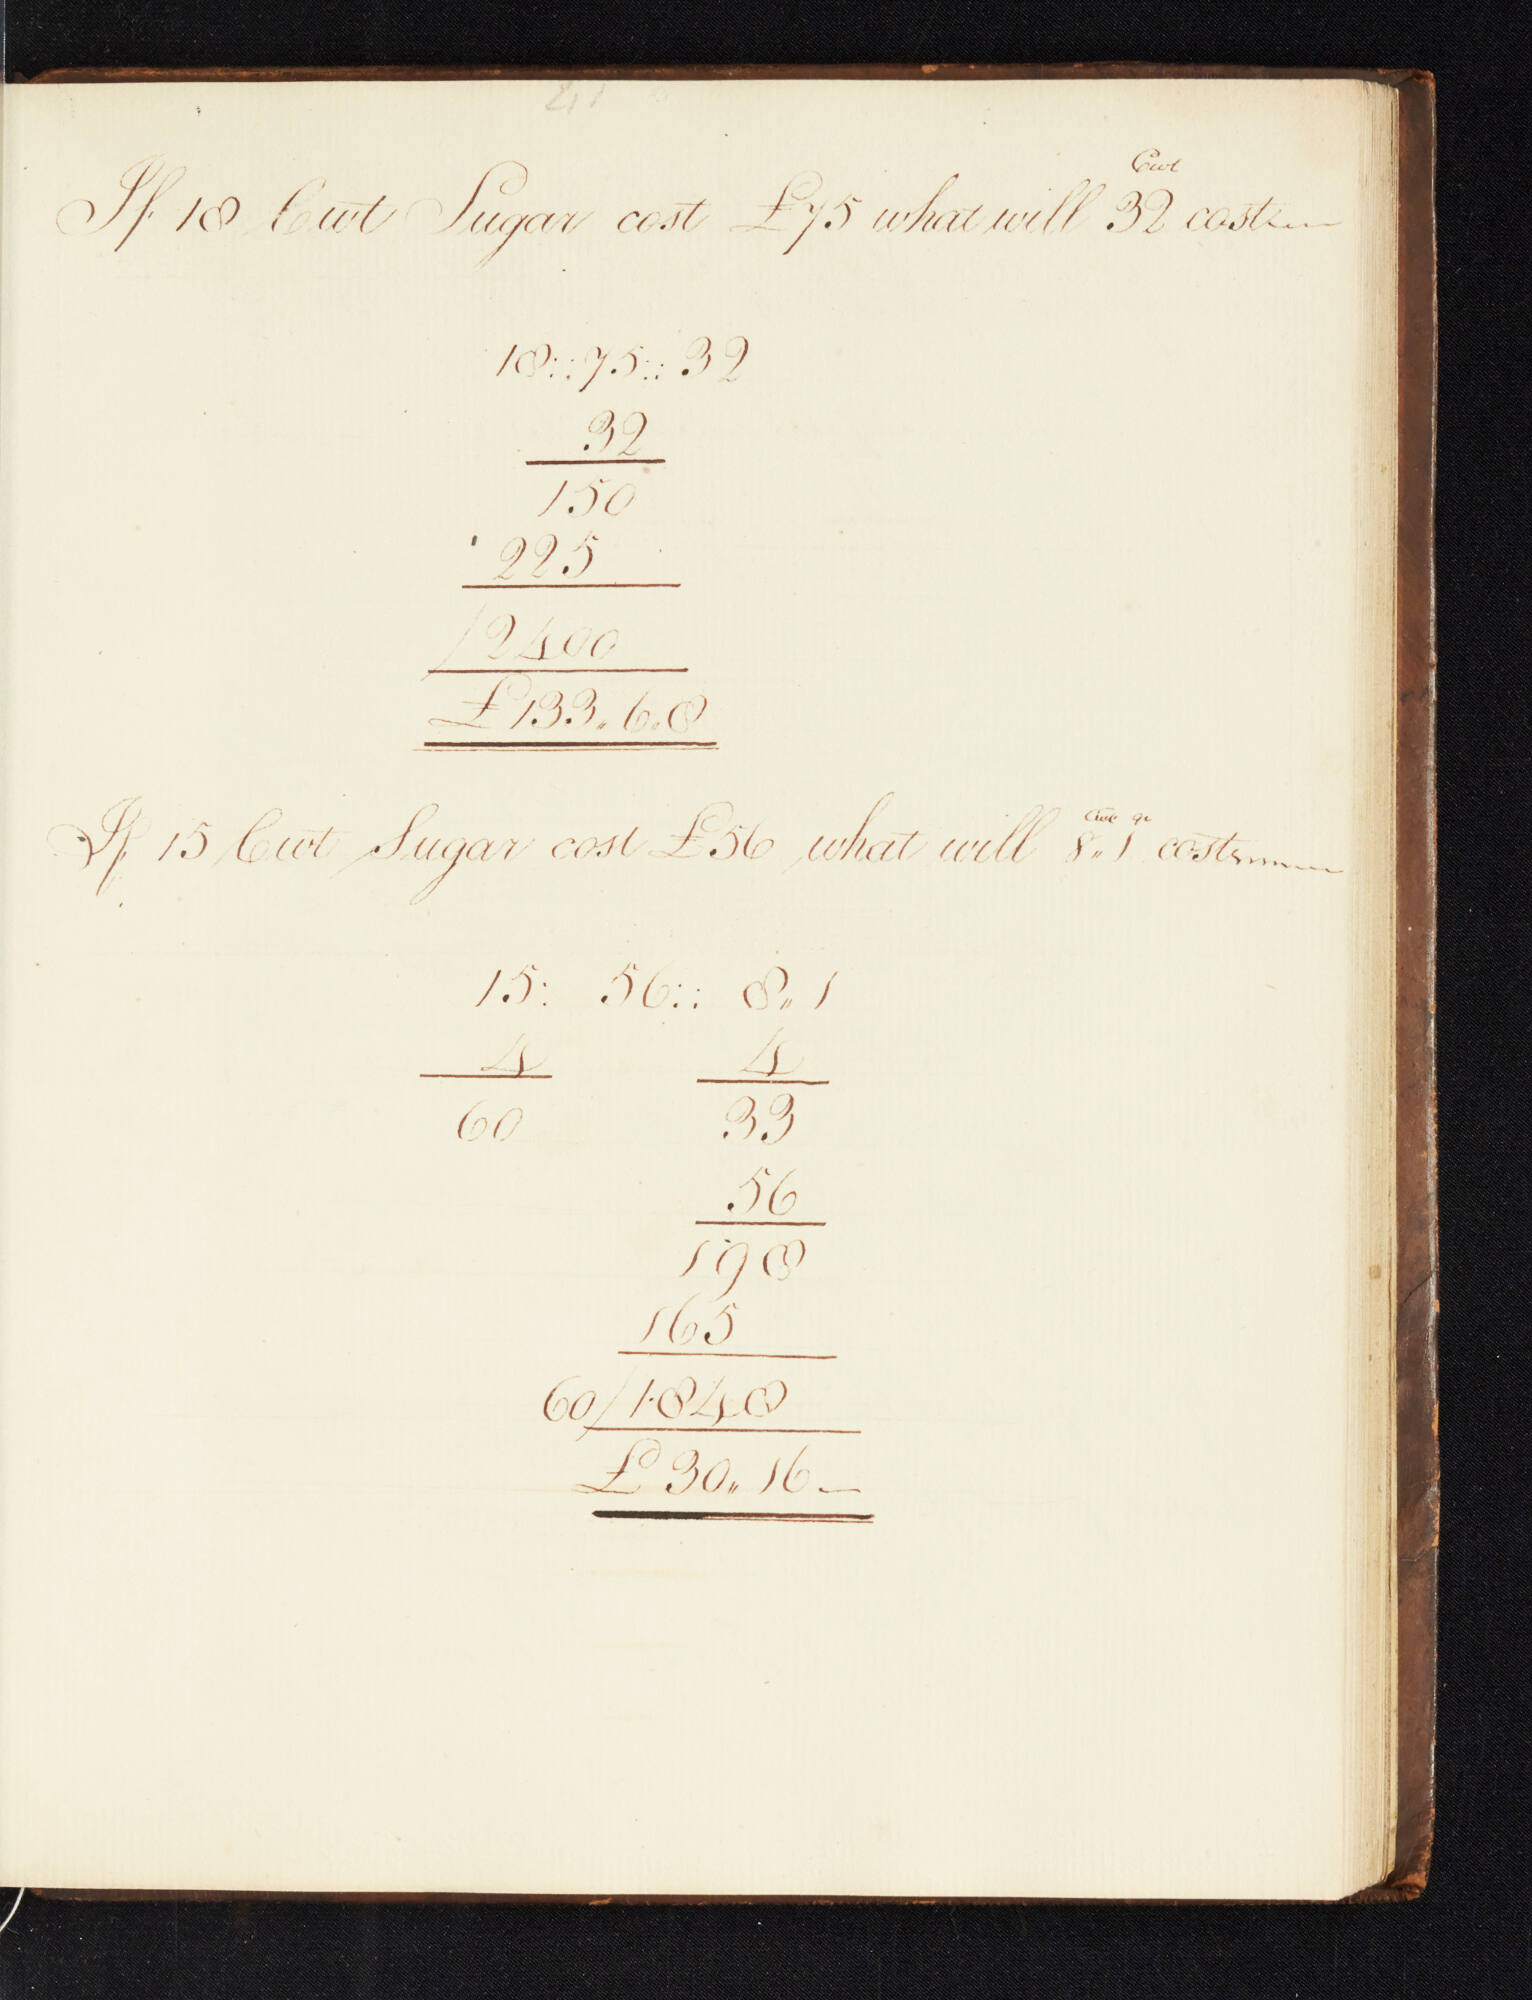 If 18 Cwt Sugar cost £75 what will 32 Cwt cost
18::75::32
32
150
225
2400
£133.. 6.. 8
If 15 Cwt Sugar cost £56 what will 8 Cwt.. 1 qr cost
15: 56:: 8.. 1
4 4
60 33
56
198
165
60/1848
£30.. 16 —